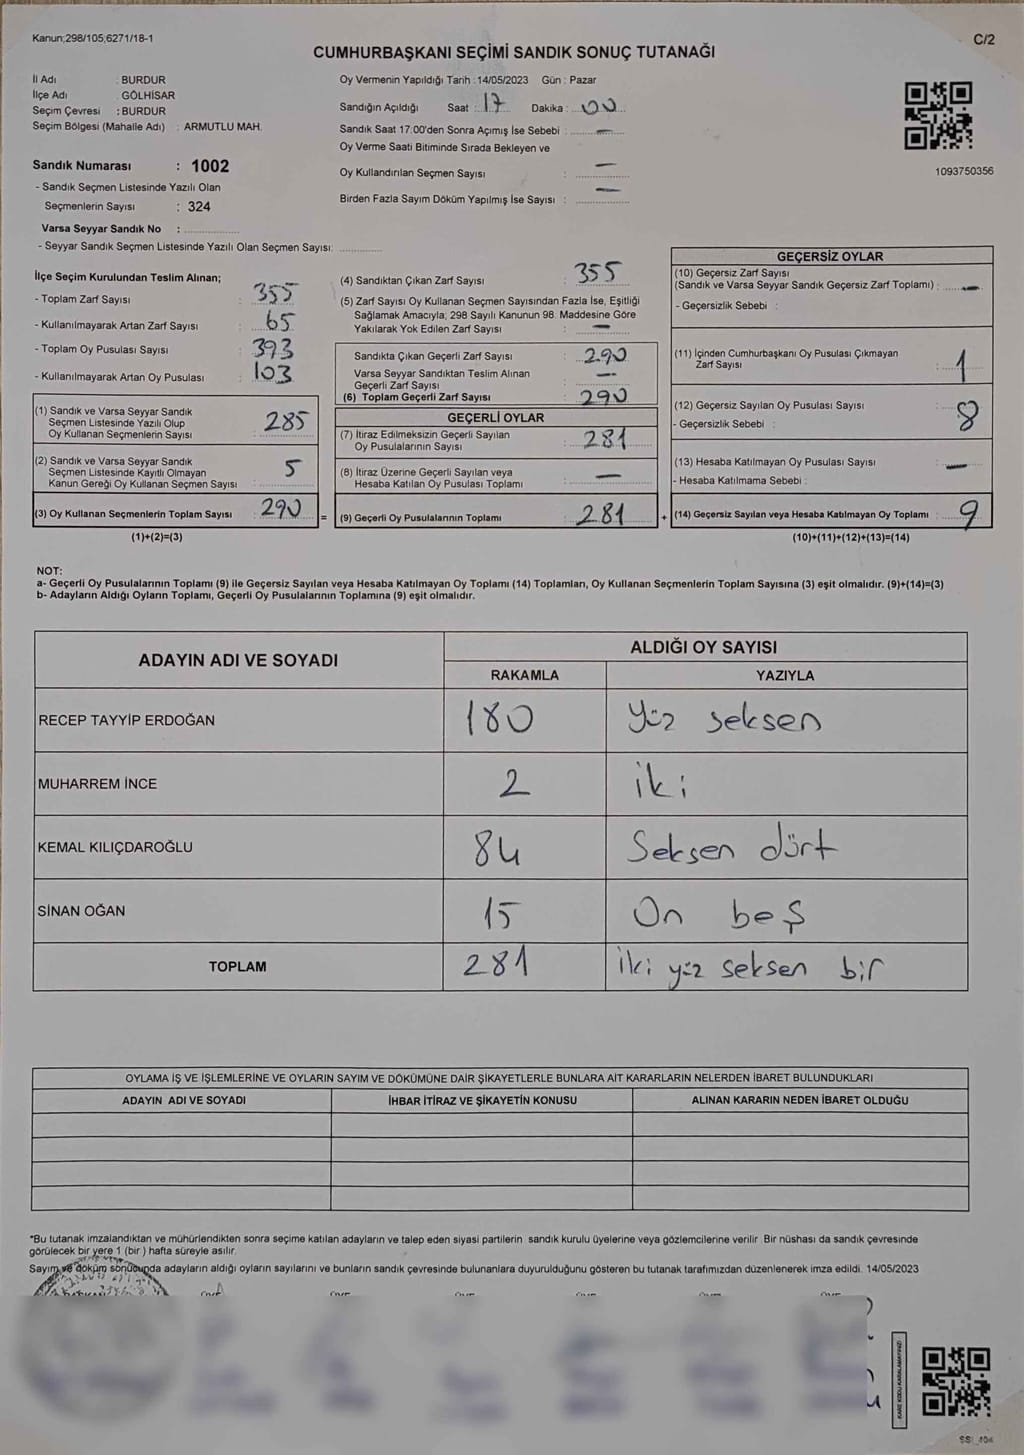 Kanun;298/105,6271/18-1
C/2
CUMHURBAŞKANI SEÇİMİ SANDIK SONUÇ TUTANAĞI
İl Adı : BURDUR
İlçe Adı : GÖLHİSAR
Seçim Çevresi : BURDUR
Seçim Bölgesi (Mahalle Adı) : ARMUTLU MAH.
Sandık Numarası : 1002
- Sandık Seçmen Listesinde Yazılı Olan
Seçmenlerin Sayısı : 324
Varsa Seyyar Sandık No :
- Seyyar Sandık Seçmen Listesinde Yazılı Olan Seçmen Sayısı:
Oy Vermenin Yapıldığı Tarih : 14/05/2023 Gün : Pazar
Sandığın Açıldığı Saat : 17 Dakika : 00
Sandık Saat 17:00'den Sonra Açımış İse Sebebi : —
Oy Verme Saati Bitiminde Sırada Bekleyen ve
Oy Kullandırılan Seçmen Sayısı : —
Birden Fazla Sayım Döküm Yapılmış İse Sayısı : —
1093750356
İlçe Seçim Kurulundan Teslim Alınan;
- Toplam Zarf Sayısı : 355
- Kullanılmayarak Artan Zarf Sayısı : 65
- Toplam Oy Pusulası Sayısı : 393
- Kullanılmayarak Artan Oy Pusulası : 103
(1) Sandık ve Varsa Seyyar Sandık
Seçmen Listesinde Yazılı Olup
Oy Kullanan Seçmenlerin Sayısı : 285
(2) Sandık ve Varsa Seyyar Sandık
Seçmen Listesinde Kayıtlı Olmayan
Kanun Gereği Oy Kullanan Seçmen Sayısı : 5
(3) Oy Kullanan Seçmenlerin Toplam Sayısı : 290 =
(1)+(2)=(3)
(4) Sandıktan Çıkan Zarf Sayısı : 355
(5) Zarf Sayısı Oy Kullanan Seçmen Sayısından Fazla İse, Eşitliği
Sağlamak Amacıyla; 298 Sayılı Kanunun 98. Maddesine Göre
Yakılarak Yok Edilen Zarf Sayısı : —
Sandıkta Çıkan Geçerli Zarf Sayısı : 290
Varsa Seyyar Sandıktan Teslim Alınan
Geçerli Zarf Sayısı : —
(6) Toplam Geçerli Zarf Sayısı : 290
GEÇERLİ OYLAR
(7) İtiraz Edilmeksizin Geçerli Sayılan
Oy Pusulalarının Sayısı : 281
(8) İtiraz Üzerine Geçerli Sayılan veya
Hesaba Katılan Oy Pusulası Toplamı : —
(9) Geçerli Oy Pusulalarının Toplamı : 281 +
GEÇERSİZ OYLAR
(10) Geçersiz Zarf Sayısı
(Sandık ve Varsa Seyyar Sandık Geçersiz Zarf Toplamı) : —
- Geçersizlik Sebebi :
(11) İçinden Cumhurbaşkanı Oy Pusulası Çıkmayan
Zarf Sayısı : 1
(12) Geçersiz Sayılan Oy Pusulası Sayısı : 8
- Geçersizlik Sebebi :
(13) Hesaba Katılmayan Oy Pusulası Sayısı : —
- Hesaba Katılmama Sebebi :
(14) Geçersiz Sayılan veya Hesaba Katılmayan Oy Toplamı : 9
(10)+(11)+(12)+(13)=(14)
NOT:
a- Geçerli Oy Pusulalarının Toplamı (9) ile Geçersiz Sayılan veya Hesaba Katılmayan Oy Toplamı (14) Toplamları, Oy Kullanan Seçmenlerin Toplam Sayısına (3) eşit olmalıdır. (9)+(14)=(3)
b- Adayların Aldığı Oyların Toplamı, Geçerli Oy Pusulalarının Toplamına (9) eşit olmalıdır.
ADAYIN ADI VE SOYADI ALDIĞI OY SAYISI
RAKAMLA YAZIYLA
RECEP TAYYİP ERDOĞAN 180 Yüz seksen
MUHARREM İNCE 2 iki
KEMAL KILIÇDAROĞLU 84 Seksen dört
SİNAN OĞAN 15 On beş
TOPLAM 281 iki yüz seksen bir
OYLAMA İŞ VE İŞLEMLERİNE VE OYLARIN SAYIM VE DÖKÜMÜNE DAİR ŞİKAYETLERLE BUNLARA AİT KARARLARIN NELERDEN İBARET BULUNDUKLARI
ADAYIN ADI VE SOYADI İHBAR İTİRAZ VE ŞİKAYETİN KONUSU ALINAN KARARIN NEDEN İBARET OLDUĞU
*Bu tutanak imzalandıktan ve mühürlendikten sonra seçime katılan adayların ve talep eden siyasi partilerin sandık kurulu üyelerine veya gözlemcilerine verilir. Bir nüshası da sandık çevresinde
görülecek bir yere 1 (bir ) hafta süreyle asılır.
Sayım ve döküm sonucunda adayların aldığı oyların sayılarını ve bunların sandık çevresinde bulunanlara duyurulduğunu gösteren bu tutanak tarafımızdan düzenlenerek imza edildi. 14/05/2023
KARE KODU KARALAMAYINIZ!